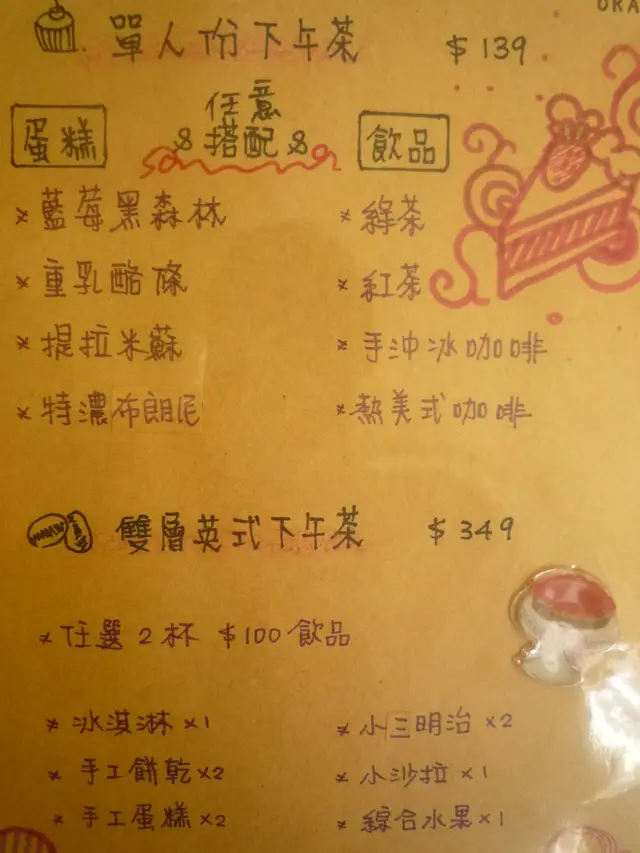 DRA
單人份下午茶 $139
任意
蛋糕 搭配 飲品
×藍莓黑森林 ×綠茶
×重乳酪條 ×紅茶
×提拉米蘇 ×手沖冰咖啡
×特濃布朗尼 ×熱美式咖啡
雙層英式下午茶 $349
×任選2杯 $100飲品
×冰淇淋×1 ×小三明治×2
×手工餅乾×2 ×小沙拉×1
×手工蛋糕×2 ×綜合水果×1